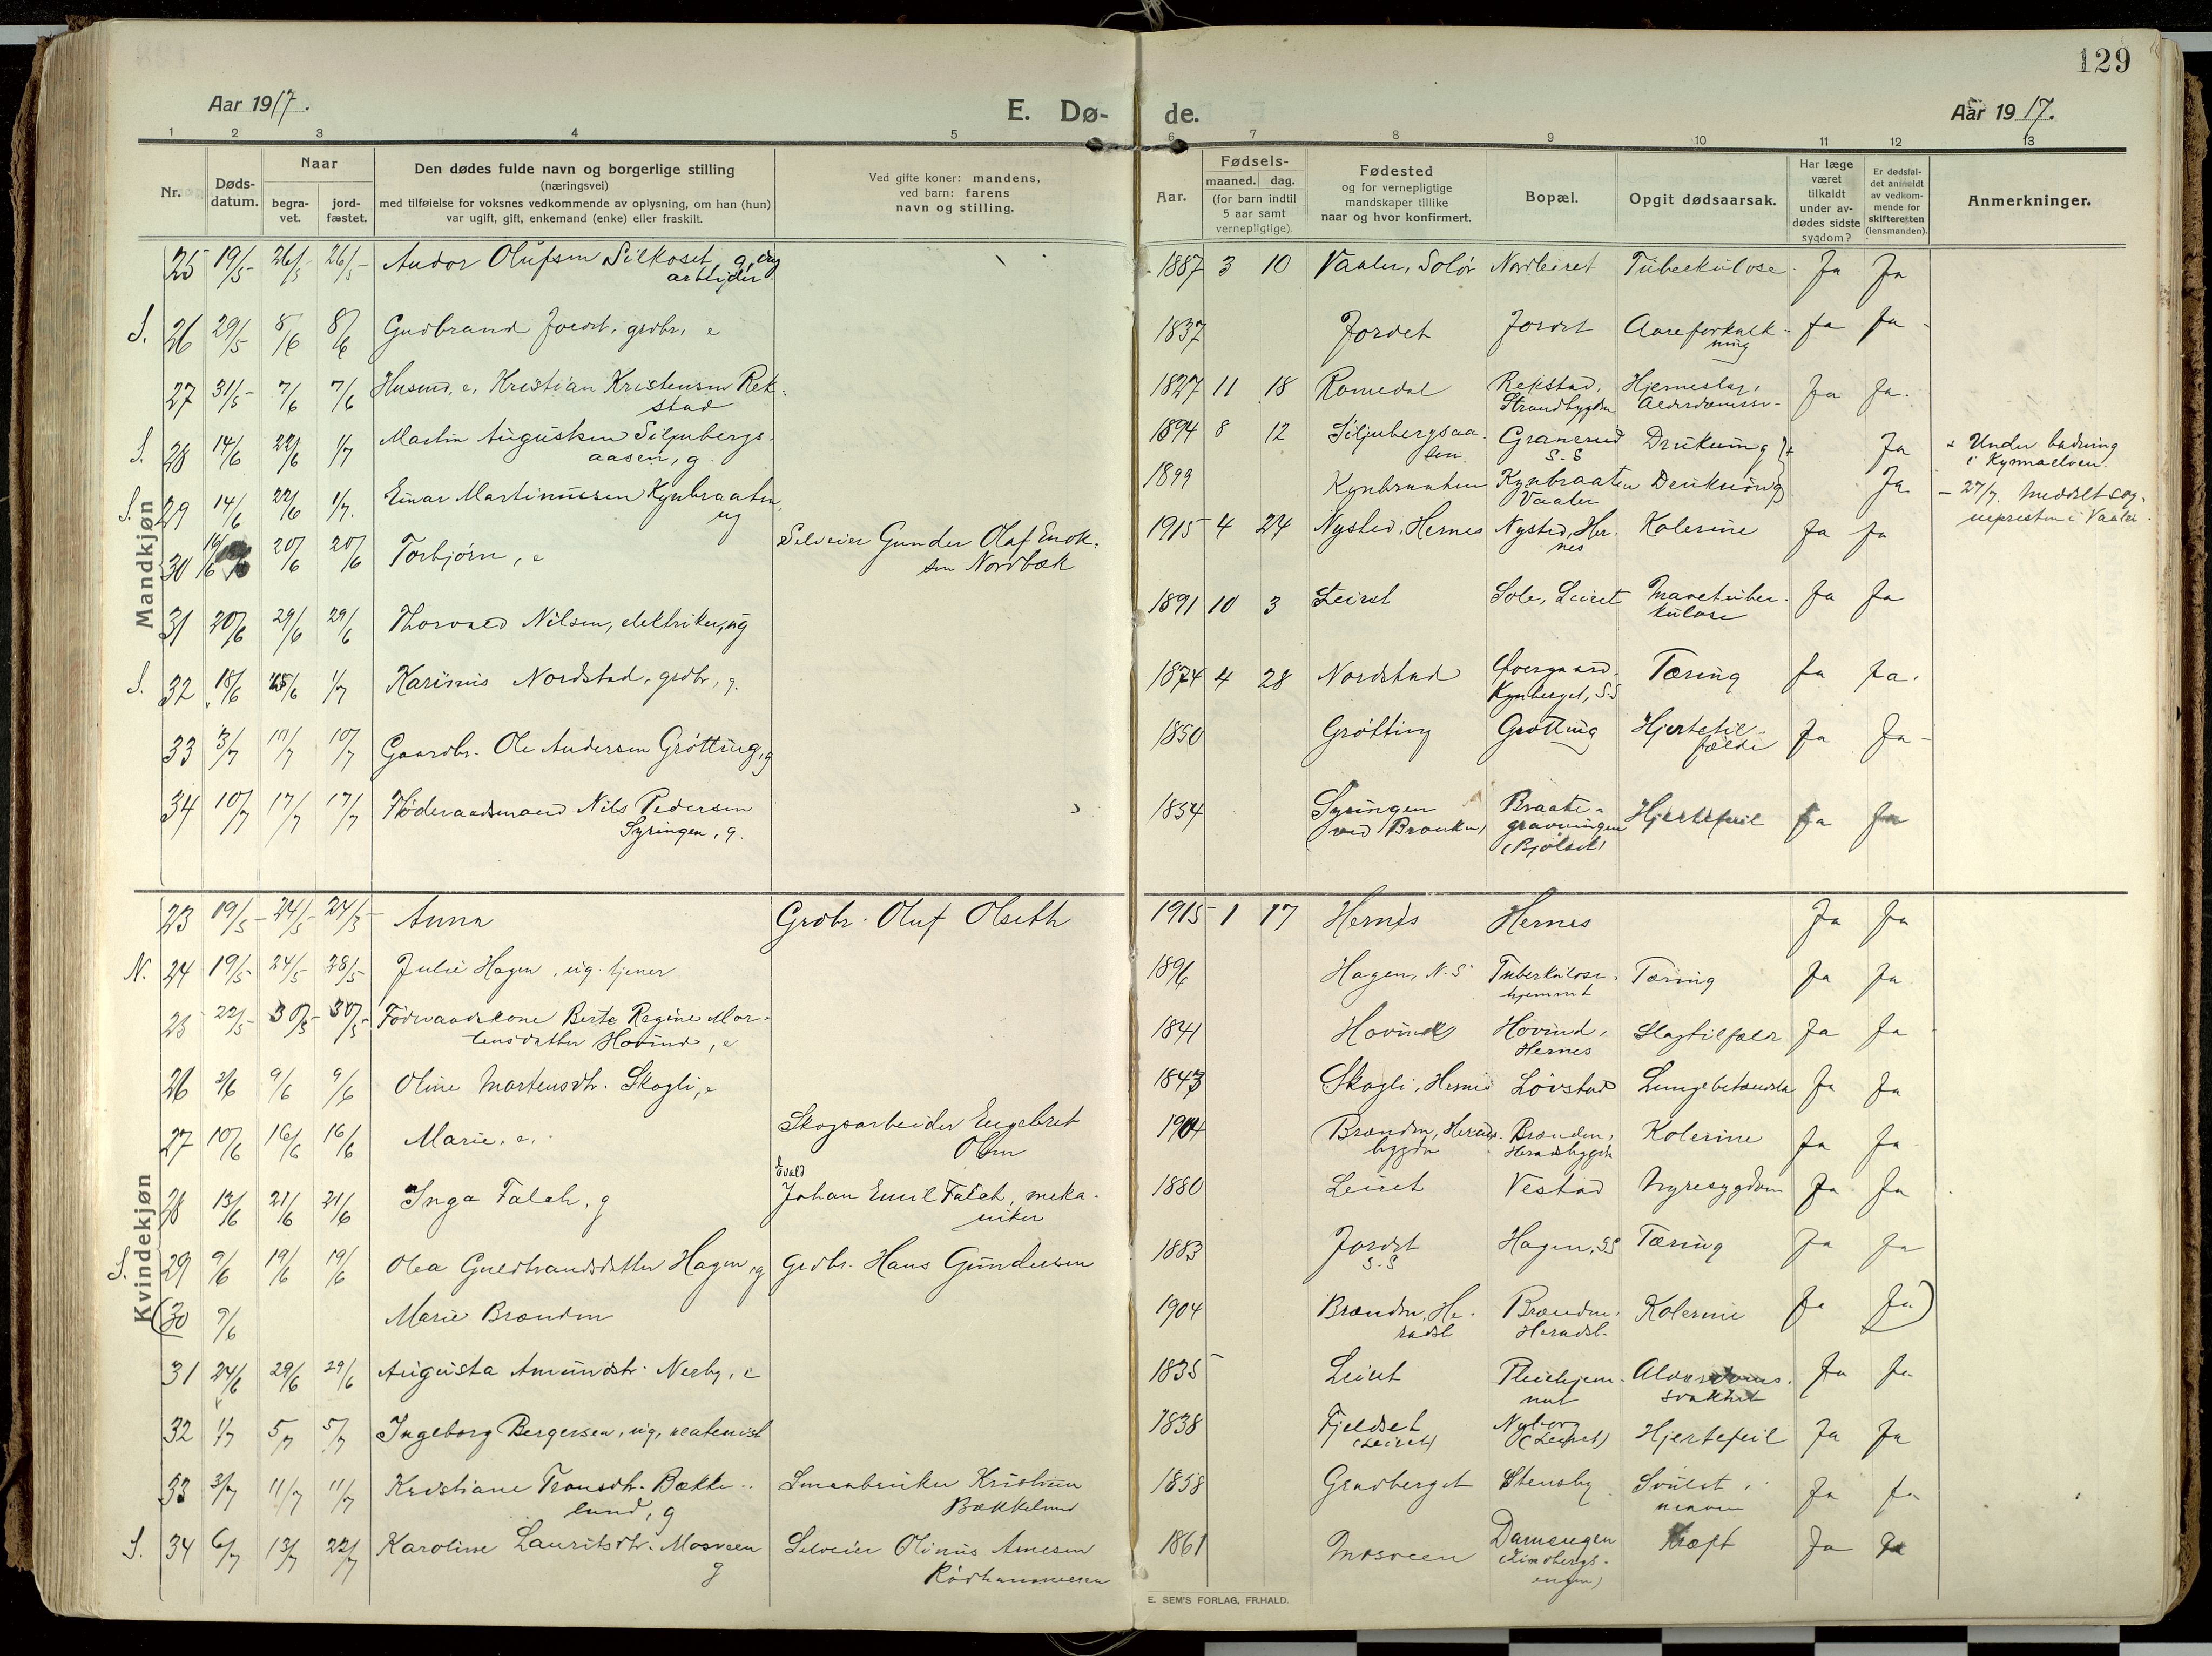 129
Aar 1917.
E. Dø- de.
Aar 1917.
1 2 3 4 5 6 7 8 9 10 11 12 13
Nr.
Døds-
datum.
Naar
begra-
vet.
jord-
fæstet.
Den dødes fulde navn og borgerlige stilling
(næringsvei)
med tilføielse for voksnes vedkommende av oplysning, om han (hun)
var ugift, gift, enkemand (enke) eller fraskilt.
Ved gifte koner: mandens,
ved barn: farens
navn og stilling.
Aar.
Fødsels-
maaned. dag.
(for barn indtil
5 aar samt
vernepligtige).
Fødested
og for vernepligtige
mandskaper tillike
naar og hvor konfirmert.
Bopæl.
Opgit dødsaarsak.
Har læge
været
tilkaldt
under av-
dødes sidste
sygdom?
Er dødsfal-
det anmeldt
av vedkom-
mende for
skifteretten
(lensmanden).
Anmerkninger.
Mandkjøn
25 19/5 26/5 26/5 Andor Olufsen Silkoset, g,
arbeider 1887 3 10 Vaaler, Solør Nordleiret Tuberkulose Ja Ja
S. 26 29/5 8/6 8/6 Gudbrand Jordet, grdbr, e 1837 Jordet Jordet Aareforkalk-
ning Ja Ja
27 31/5 7/6 7/6 Husmd, e, Kristian Kristensen Rek-
stad 1827 11 18 Romedal Rekstad,
Strandbygden Hjerneslag, Ja Ja
S. 28 14/6 22/6 1/7 Martin Augustsen Siljubergs-
aasen, g. 1894 8 12 Siljubergsaa-
sen Granerud
S.S Drukning Ja Under badning
i Kynnaelven.
S. 29 14/6 22/6 1/7. Einar Martinussen Kynbraaten,
ug 1899 Kynbraaten Kynbraaten
Vaaler Drukning Ja 27/7. meddelt sog-
nepresten i Vaaler.
30 16/6 20/6 20/6 Torbjørn, e Selveier Gunder Olaf Enok-
sen Nordbæk 1915 4 24 Nysted, Hernes Nysted, Her-
nes Kolerine Ja Ja
31 20/6 29/6 29/6 Thorvald Nilsen, elektriker, ug 1891 10 3 Leiret Sole, Leiret Mavetuber-
kulose Ja Ja
S. 32 18/6 25/6 1/7 Karinus Nordstad, grdbr, g. 1874 4 28 Nordstad Øvergaard,
Kynberget, S.S Tæring Ja Ja.
33 3/7 10/7 10/7 Gaardbr. Ole Andersen Grøtting, g 1850 Grøtting Grøtting Hjertetil-
fælde Ja Ja
34 10/7 17/7 17/7 Føderaadsmand Nils Pedersen
Syringen, g. 1854 Syringen
ved Brænden Braate-
gravningen
(Bjølset) Hjertefeil Ja Ja
Kvindekjøn
23 19/5 24/5 24/5 Anna Grdbr. Oluf Olseth 1915 1 17 Hernes Hernes Ja Ja
N. 24 19/5 24/5 28/5 Julie Hagen, ug. tjener 1896 Hagen, N.S. Tuberkulose-
hjemmet Tæring Ja Ja
25 22/5 30/5 30/5 Føderaadskone Berte Regine Mor-
tensdatter Hovind, e 1841 Hovind Hovind,
Hernes Slagtilfælde Ja Ja
26 3/6 9/6 9/6 Oline Mortensdtr. Skogli, e 1843 Skogli, Hernes Løvstad Lungebetændelse Ja Ja
27 10/6 16/6 16/6 Marie, e. Skogsarbeider Engebret
Olsen 1904 Brænden, Herads-
bygden Brænden,
Heradsbygden Kolerine Ja Ja
28 13/6 21/6 21/6 Inga Falch, g Evald
Johan Emil Falch, meka-
niker 1880 Leiret Vestad Nyresygdom Ja Ja
S. 29 9/6 19/6 19/6 Olea Guldbrandsdatter Hagen, g Grdbr. Hans Gundersen 1883 Jordet
S.S Hagen, SS Tæring Ja Ja
(30 9/6 Marie Brænden 1904 Brænden, He-
radsb Brænden,
Heradsb. Kolerine Ja Ja)
31 24/6 29/6 29/6 Augusta Amundsdtr. Nerby, e 1835 Leiret Pleiehjem-
met Alderdoms-
svakhet Ja Ja
32 1/7 5/7 5/7 Ingeborg Bergersen, ug, rentenist 1838 Fjeldset
(Leiret) Nyborg
(Leiret) Hjertefeil Ja Ja
33 3/7 11/7 11/7 Kristiane Tronsdtr. Bække-
lund, g Smaabruker Kristian
Bækkelund 1858 Gradberget Stensby Svulst i
maven Ja Ja
S. 34 6/7 13/7 22/7 Karoline Lauritsdtr. Mosveen
g Selveier Olinus Arnesen
Rødhammeren 1861 Mosveen Damengen
(Lindbergs-
engen) Kræft Ja Ja
E. SEM'S FORLAG, FR.HALD.